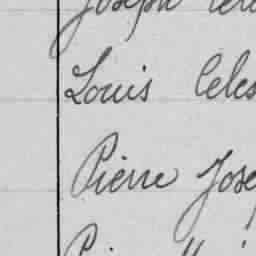 Joseph
Louis Celes
Pierre Jose